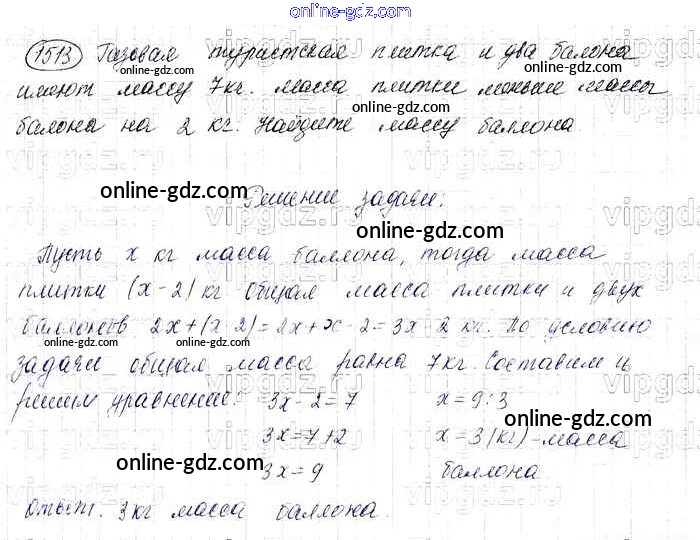 online-gdz.com
1513 Газовая туристская плитка и два балона
online-gdz.com online-gdz.com
имеют массу 7кг. масса плитки меньше массы
online-gdz.com
балона на 2 кг. Найдите массу баллона.
online-gdz.com
Решение задачи:
online-gdz.com
Пусть х кг масса баллона, тогда масса
плитки (х-2) кг общая масса плитки и двух
online-gdz.com
баллонов 2х+(х-2)=2х+х-2=3х-2 кг. По условию
задачи общая масса равна 7кг. Составим и
решим уравнение: 3х-2=7 х=9:3
online-gdz.com
3х=7+2 х=3(кг)-масса
online-gdz.com
3х=9 баллона
Ответ. 3кг масса баллона.
vipgdz.ru